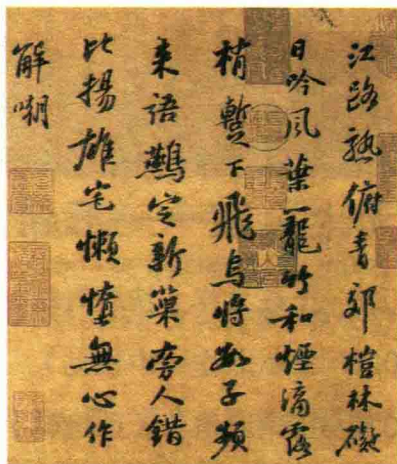 江路熟俯青郊榿林礙
日吟風葉籠竹和煙滴露
梢暫下飛烏將數子頻
来語鷰定新巢旁人錯
比揚雄宅懶惰無心作
解嘲